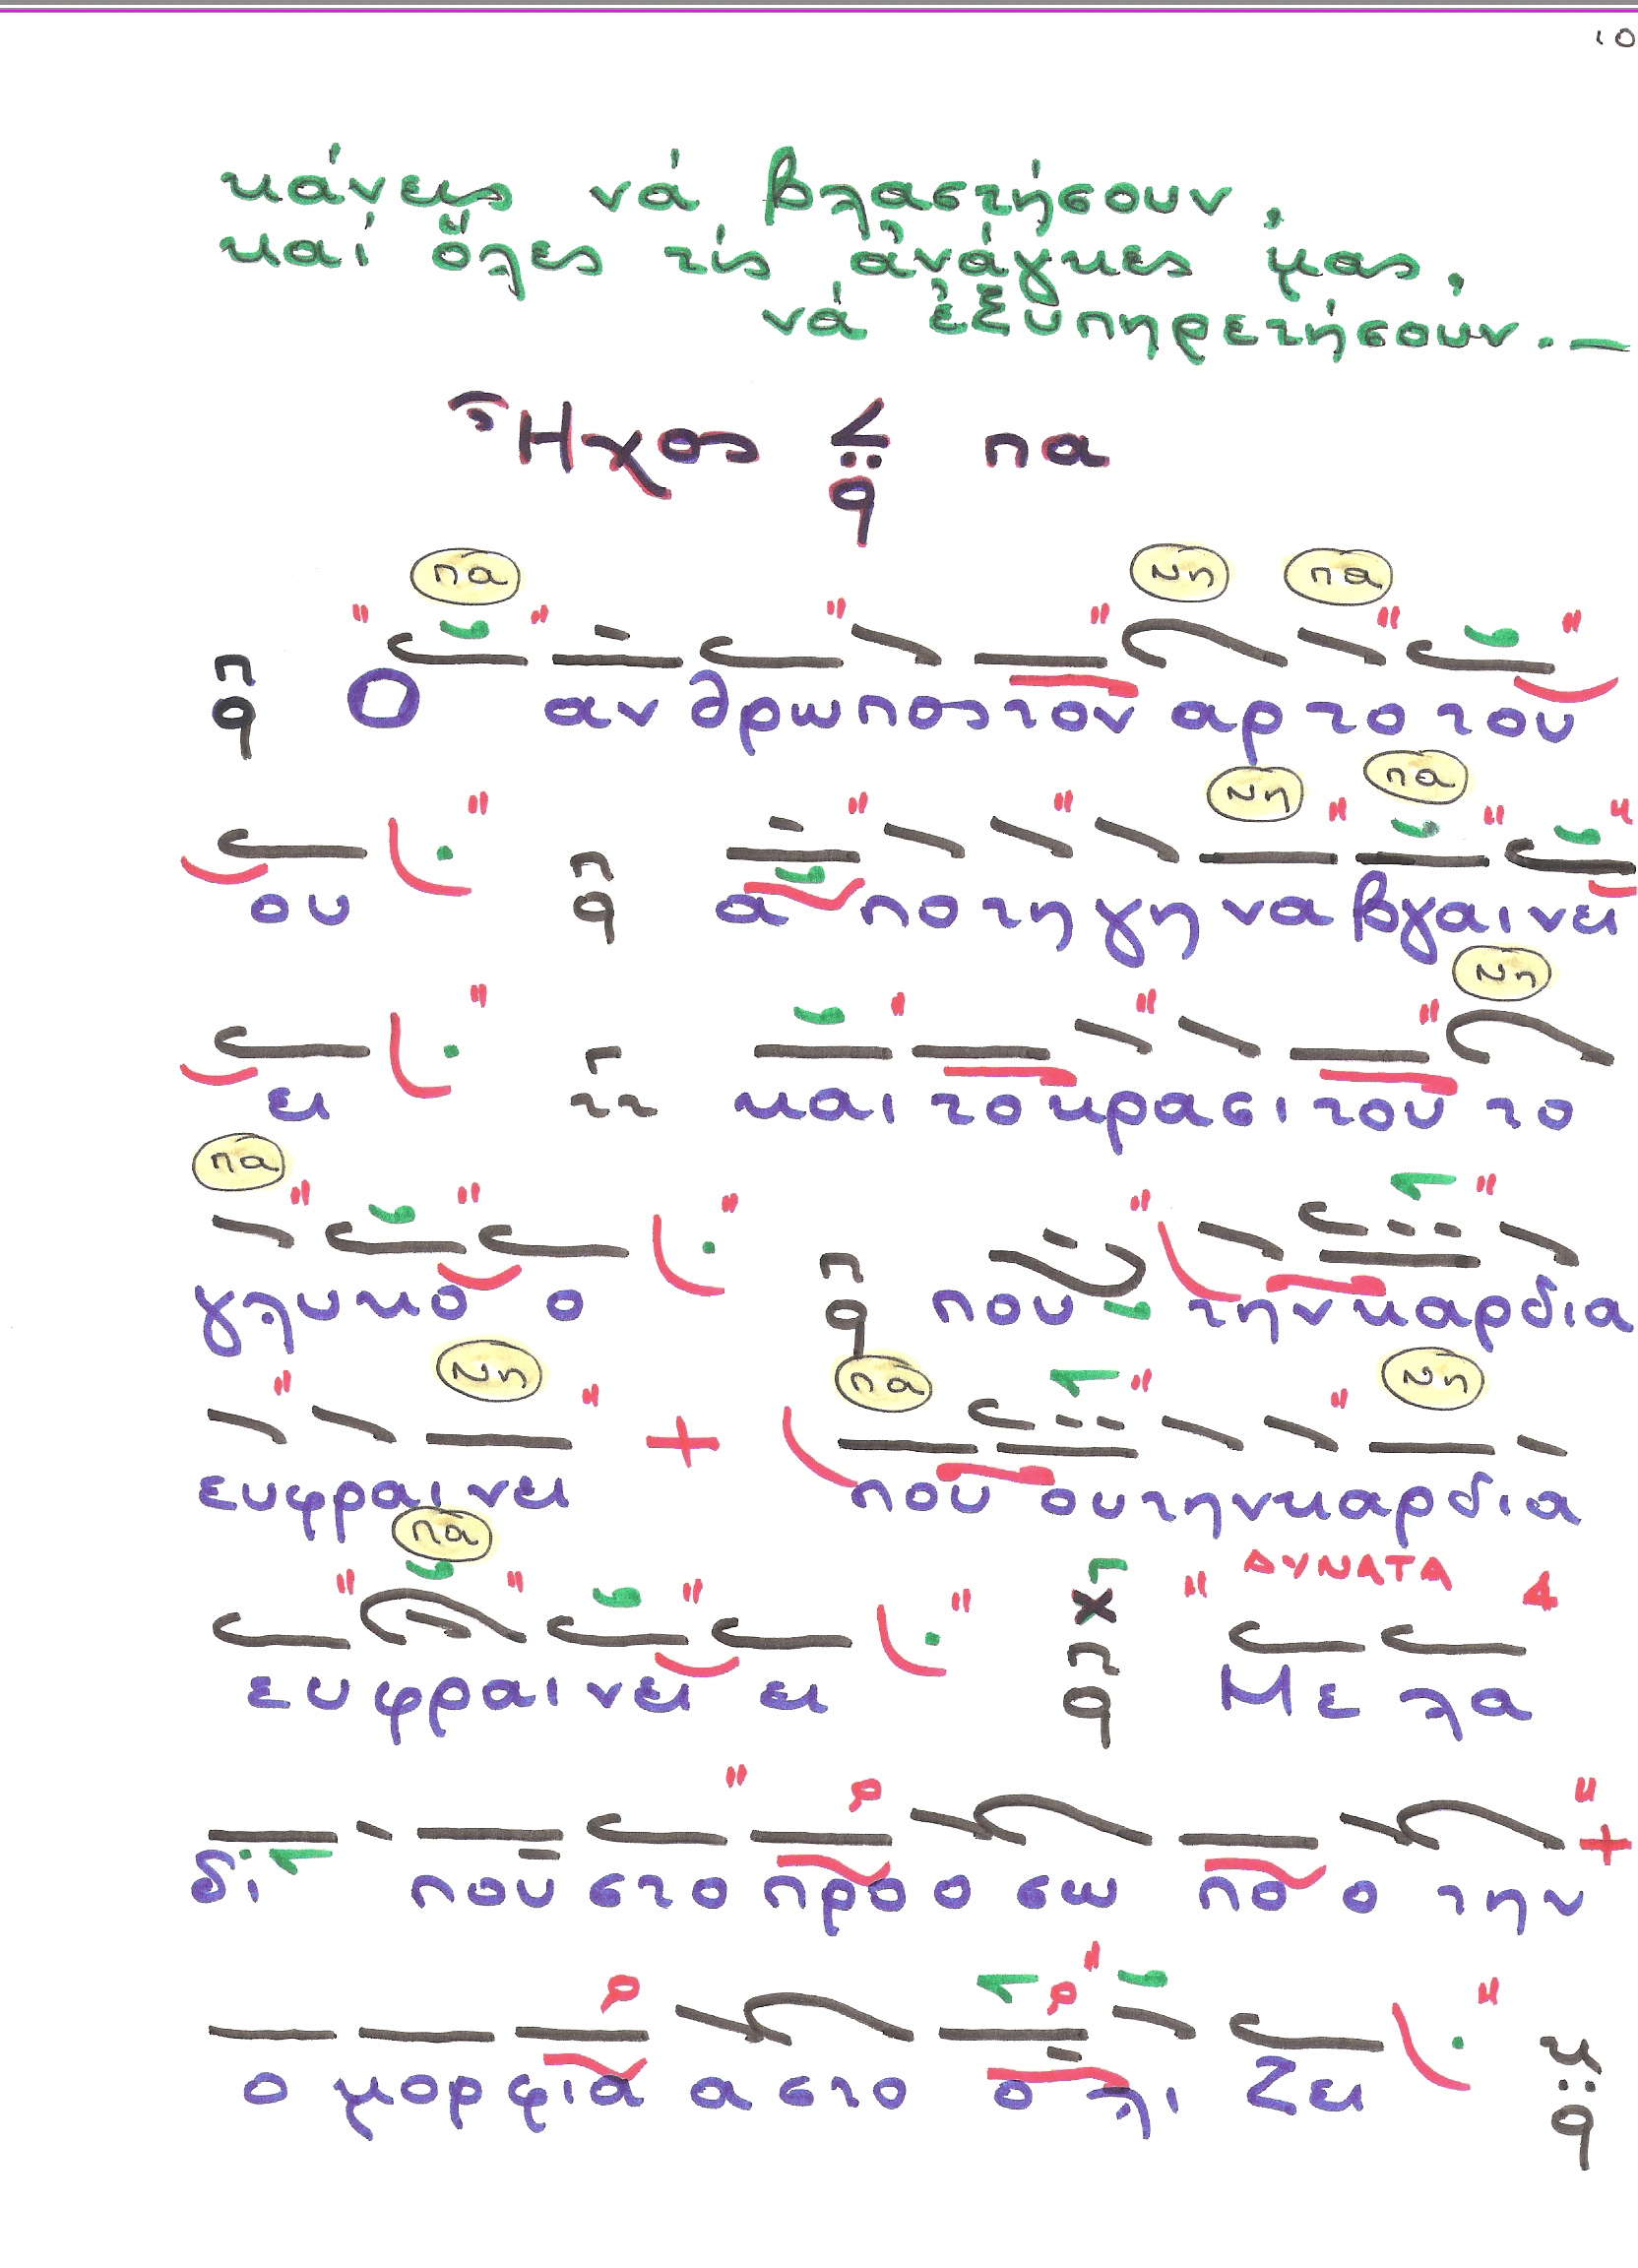 10
κάνεις νά βλαστήσουν,
καί ὅλες τίς ἀνάγκες μας,
νά ἐξυπηρετήσουν.—
Ἦχος πα
πα νη πα
Ο αν θρω πος τον αρ το του
νη πα
ου α πο τη γη να βγαι νει
νη
ει και το κρα σι του το
πα
γλυ κο ο που την καρ δια
νη πα νη
ευ φραι νει που ου την καρ δι α
πα
ΔΥΝΑΤΑ 4
ευ φραι νει ει Με λα
δι που στο προ ο σω πο ο την
ο μορ φια α στο ο λι ζει